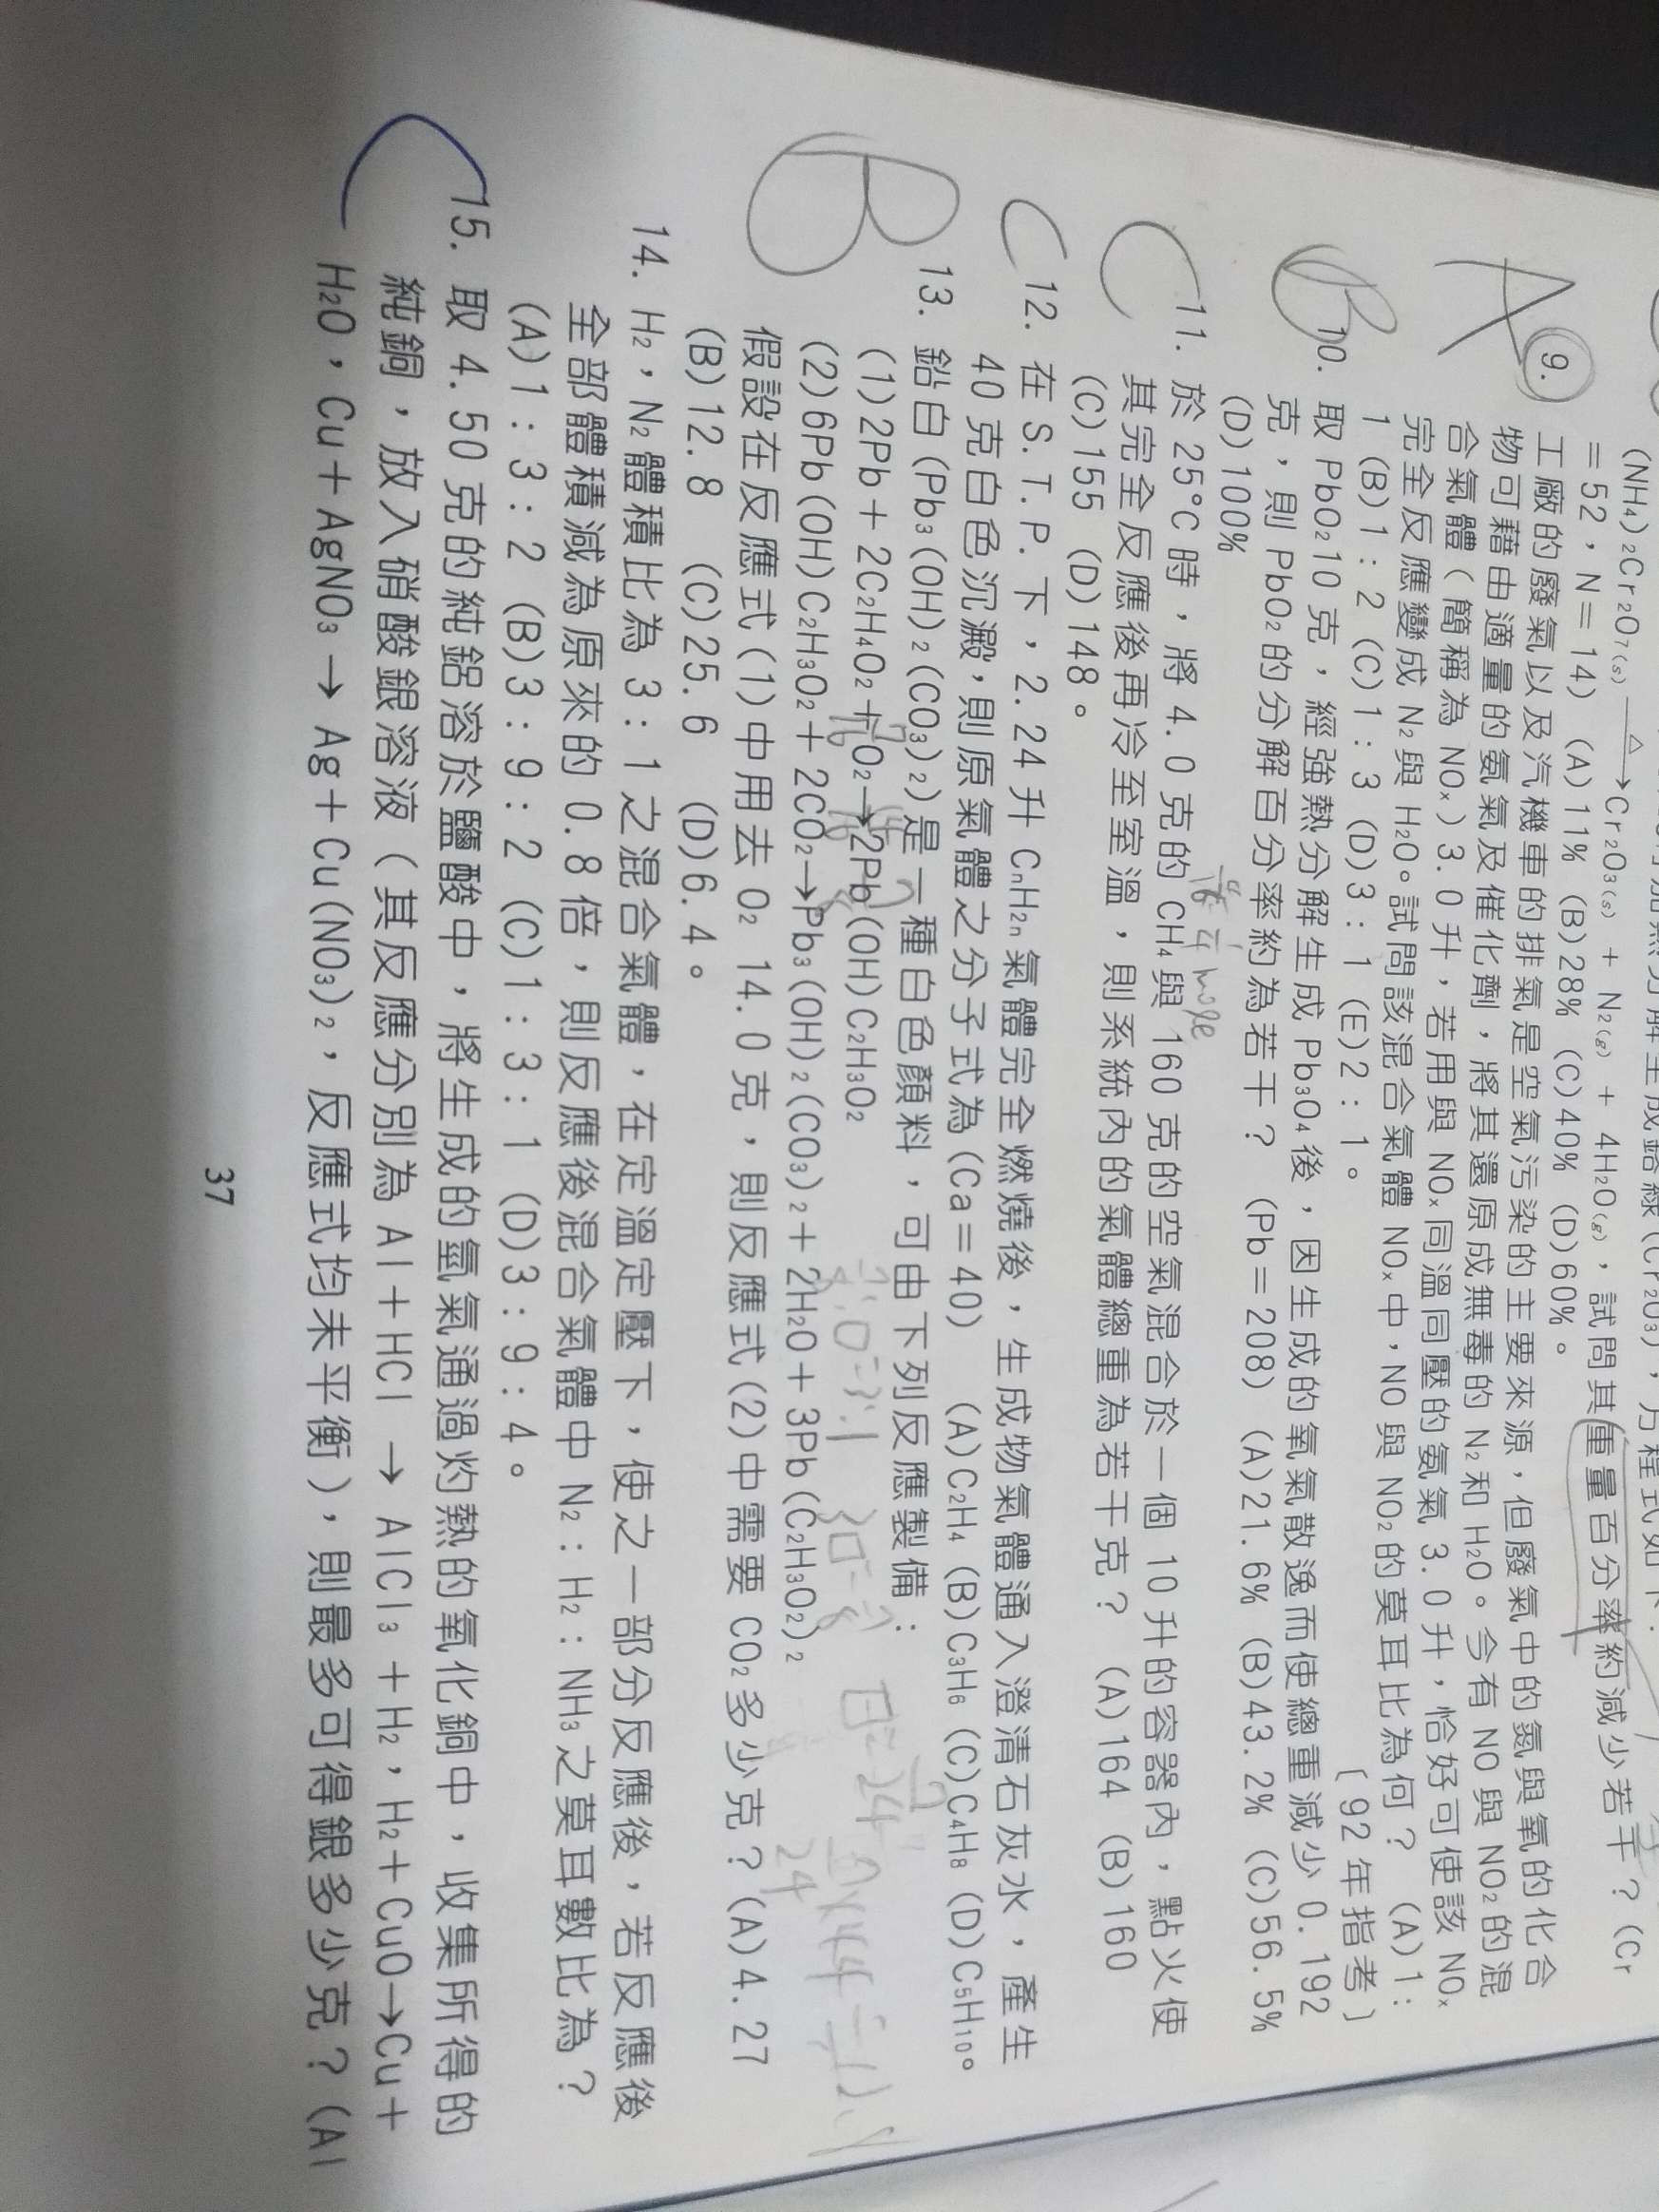 (NH₄)₂Cr₂O₇(s) △→ Cr₂O₃(s) + N₂(g) + 4H₂O(g),試問其重量百分率約減少若干?(Cr
=52,N=14) (A)11% (B)28% (C)40% (D)60%。
A 9. 工廠的廢氣以及汽機車的排氣是空氣污染的主要來源,但廢氣中的氮與氧的化合
物可藉由適量的氨氣及催化劑,將其還原成無毒的 N₂和 H₂O。今有 NO 與 NO₂的混
合氣體(簡稱為 NOₓ)3.0升,若用與 NOₓ同溫同壓的氨氣 3.0升,恰好可使該 NOₓ
完全反應變成 N₂與 H₂O。試問該混合氣體 NOₓ中,NO 與 NO₂的莫耳比為何? (A)1:
1 (B)1:2 (C)1:3 (D)3:1 (E)2:1。 〔92年指考〕
B 10. 取 PbO₂10克,經強熱分解生成 Pb₃O₄後,因生成的氧氣散逸而使總重減少 0.192
克,則 PbO₂的分解百分率約為若干? (Pb=208) (A)21.6% (B)43.2% (C)56.5%
(D)100%
C 11. 於 25℃時,將 4.0克的 CH₄與 160克的空氣混合於一個 10升的容器內,點火使
其完全反應後再冷至室溫,則系統內的氣體總重為若干克? (A)164 (B)160
(C)155 (D)148。
C 12. 在 S.T.P.下,2.24升 CₙH₂ₙ氣體完全燃燒後,生成物氣體通入澄清石灰水,產生
40克白色沉澱,則原氣體之分子式為(Ca=40) (A)C₂H₄ (B)C₃H₆ (C)C₄H₈ (D)C₅H₁₀。
B 13. 鉛白(Pb₃(OH)₂(CO₃)₂)是一種白色顏料,可由下列反應製備:
(1)2Pb+2C₂H₄O₂+O₂→2Pb(OH)C₂H₃O₂
(2)6Pb(OH)C₂H₃O₂+2CO₂→Pb₃(OH)₂(CO₃)₂+2H₂O+3Pb(C₂H₃O₂)₂
假設在反應式(1)中用去 O₂ 14.0克,則反應式(2)中需要 CO₂多少克?(A)4.27
(B)12.8 (C)25.6 (D)6.4。
14. H₂,N₂體積比為 3:1之混合氣體,在定溫定壓下,使之一部分反應後,若反應後
全部體積減為原來的 0.8倍,則反應後混合氣體中 N₂:H₂:NH₃之莫耳數比為?
(A)1:3:2 (B)3:9:2 (C)1:3:1 (D)3:9:4。
C 15. 取 4.50克的純鋁溶於鹽酸中,將生成的氫氣通過灼熱的氧化銅中,收集所得的
純銅,放入硝酸銀溶液(其反應分別為 Al+HCl → AlCl₃+H₂,H₂+CuO→Cu+
H₂O,Cu+AgNO₃→Ag+Cu(NO₃)₂,反應式均未平衡),則最多可得銀多少克?(Al
37